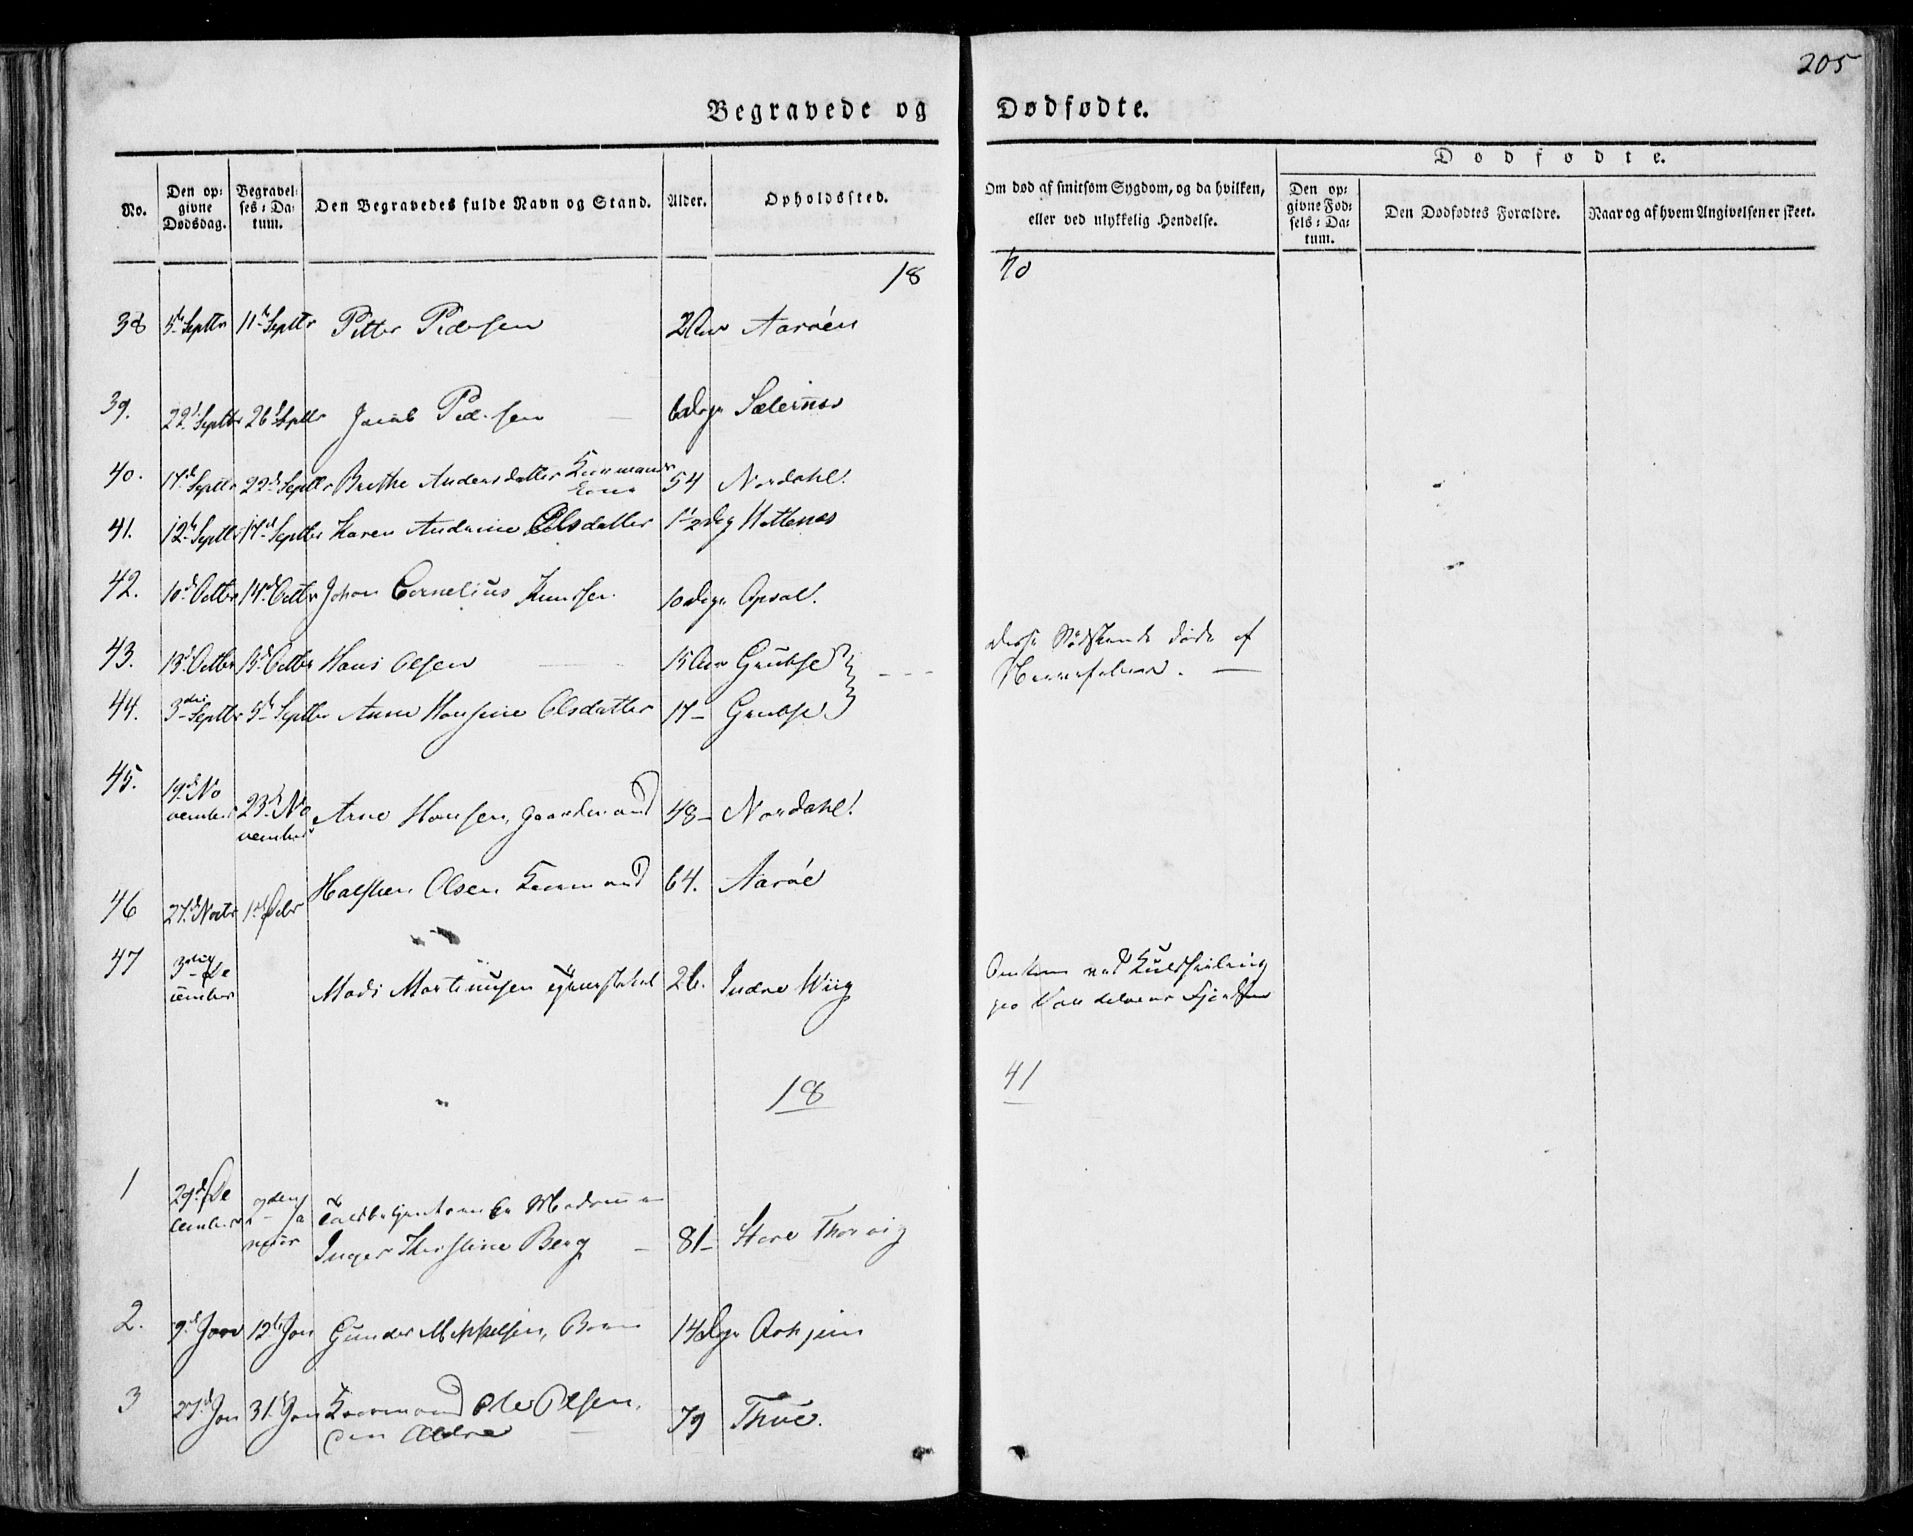 205
Begravede og Dødfødte.
No.
Den op-
givne
Dødsdag.
Begravel-
ses-Da-
tum.
Den Begravedes fulde Navn og Stand.
Alder.
Opholdssted.
Om død af smitsom Sygdom, og da hvilken,
eller ved ulykkelig Hendelse.
Dødfødte.
Den op-
givne Fød-
sels-Da-
tum.
Den Dødfødtes Forældre.
Naar og af hvem Angivelsen er skeet.
18 40
38 5te Septbr 11te Septbr Petter Pedersen 2 Aar Aarøen
39. 22d Septbr 26d Septbr Jacob Pedersen 6 Dage
40. 17d Septbr 22d Septbr Brethe Andersdatter Kaarmands
Kone 54 Nordahl.
41. 12te Septbr 17d Septbr Karen Andrine Olsdatter 1½ Dag
42. 10d Octbr 14d Octbr Johan Cornelius Knudsen 10 Dage Opsal.
43. 13d Octbr 15d Octbr Hans Olsen 15 Aar Grubse Disse Sødskende døde af
44. 3die Septbr 5te Septbr Anne Hansine Olsdatter 17- Grubse Nervefeber.
45. 19d No
vember 23d No
vember Arne Hansen, Gaardmand 48- Nordahl.
46 27d Novbr 1d Decbr Halsten Olsen Kaarmand 64. Aarøe
47 3die De
cember Mads Martinusen 26. Indre Wiig Omkom ved Kuldseiling
paa Fjorden
18 41
1 29d De
cember 2den Ja
nuar Madame
Inger Kirstine Berg 81- Store Thorvig
2. 9d Jan 12te Jan Gunder Mikkelsen, Barn 14 Dage
3 27d Jan 31d Jan Kaarmand Ole Olsen,
den Ældre 79 Thue.